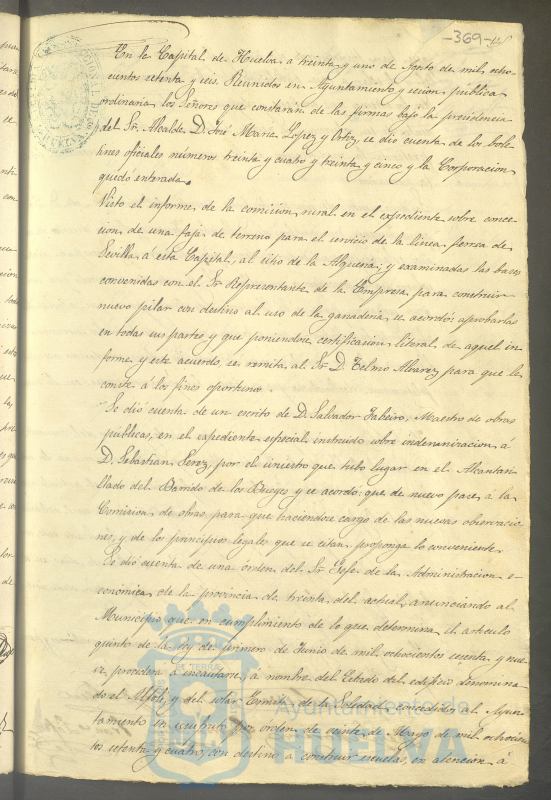 -369-
En la Capital de Huelva á treinta y uno de Agosto de mil ocho
cientos setenta y seis. Reunidos en Ayuntamiento y sesion publica
ordinaria los Señores que constaran de las firmas bajo la presidencia
del Sr. Alcalde D. José Maria Lopez y Ortiz, se dió cuenta de los bole
tines oficiales números treinta y cuatro y treinta y cinco y la Corporacion
quedó enterada.
Visto el informe de la comision rural en el expediente sobre conce
sion de una faja de terreno para el servicio de la linea ferrea de
Sevilla á esta Capital, al sitio de la Alqueria; y examinadas las bases
convenidas con el Sr. Representante de la Empresa para construir
nuevo pilar con destino al uso de la ganaderia se acordó: aprobarlas
en todas sus partes y que poniendose certificacion literal de aquel in
forme y este acuerdo, se remita al Sr. D. Telmo Alvarez para que le
conste á los fines oportunos.
Se dió cuenta de un escrito de D. Salvador Tabeiro, Maestro de obras
publicas, en el expediente especial instruido sobre indemnizacion á
D. Sebastian Perez, por el siniestro que tubo lugar en el Alcantari
llado del Barrido de los Bueyes y se acordó: que de nuevo pase á la
Comision de obras para que haciendose cargo de las nuevas observacio
nes, y de los principios legales que se citan, proponga lo conveniente.
Se dió cuenta de una orden del Sr. Gefe de la Administracion e
conómica de la provincia de treinta del actual, anunciando al
Municipio que en cumplimiento de lo que determina el articulo
quinto de la ley de primero de Junio de mil ochocientos sesenta y nue
ve, procediera á incautarse, á nombre del Estado del edificio denomina
do el Alfolí, y del solar Ermita de la Soledad, concedidos al Ayun
tamiento en usufruto por orden de veinte de Mayo de mil ochocien
tos setenta y cuatro, con destino á construir escuelas, en atencion á
Ayuntamiento de
HUELVA